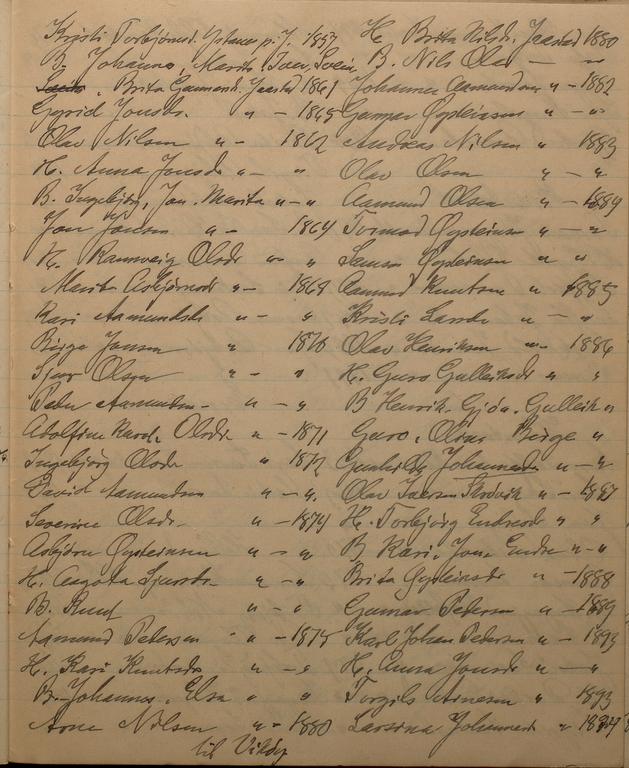 Kristi Torbjörnsd. Ystanes p.J. 1857
B. Johannes, Marita, Iver, Svein
Lars, Brita Gunnarsd. Jaastad 1861
Gyrid Jonsdr. " - 1865
Olav Nilsen " - 1862
H. Anna Jonsdr " - "
B. Ingebjörg, Jon, Marita " - "
Jon Jonsen " - 1864
H. Rannveig Olsdr " - "
Marita Asbjörnsdr " - 1868
Kari Aamundsdr " - "
Birge Jonsen " 1870
Sjur Olsen " - "
Peder Aamundsen - " - "
Adolfine Olsdr. " - 1871
Ingebjörg Olsdr " 1872
David Aamundsen " - "
Severine Olsdr - " - 1874
Asbjörn Öysteinsen " - "
H. Aagota Sjursdr. " - "
B. Knut " - "
Aamund Petersen " - 1875
H. Kari Knutsdr " - "
B. Johannes, Elsa " "
Arne Nilsen " - 1880
til Viköy
H. Brita Nilsdr. Jaastad 1880
B. Nils Olav — "
Johannes Aamundsen " - 1882
Gunnar Öysteinsen " - "
Andreas Nilsen " 1883
Olav Olsen " - "
Aamund Olsen " - 1884
Tormod Öysteinsen " - "
Samson Öysteinsen " "
Aamund Knutsen " 1885
Kristi Larsdr " - "
Olav Henriksen " - 1886
H. Guro Gulleiksdr " "
B Henrik, Gjöa, Gulleik "
Guro, Olina Birge "
Gunhilda Johannesdr " - "
Olav Iversen " - 1887
H. Torbjörg Endresdr " "
B Kari, Jon, Endre " - "
Brita Öysteinsdr " - 1888
Gunnar Petersen " - 1889
Karl Johan Pedersen " - 1893
H. Anna Jonsdr " - "
Torgils Arnesen " 1893
Larsina Johannesdr " 1894